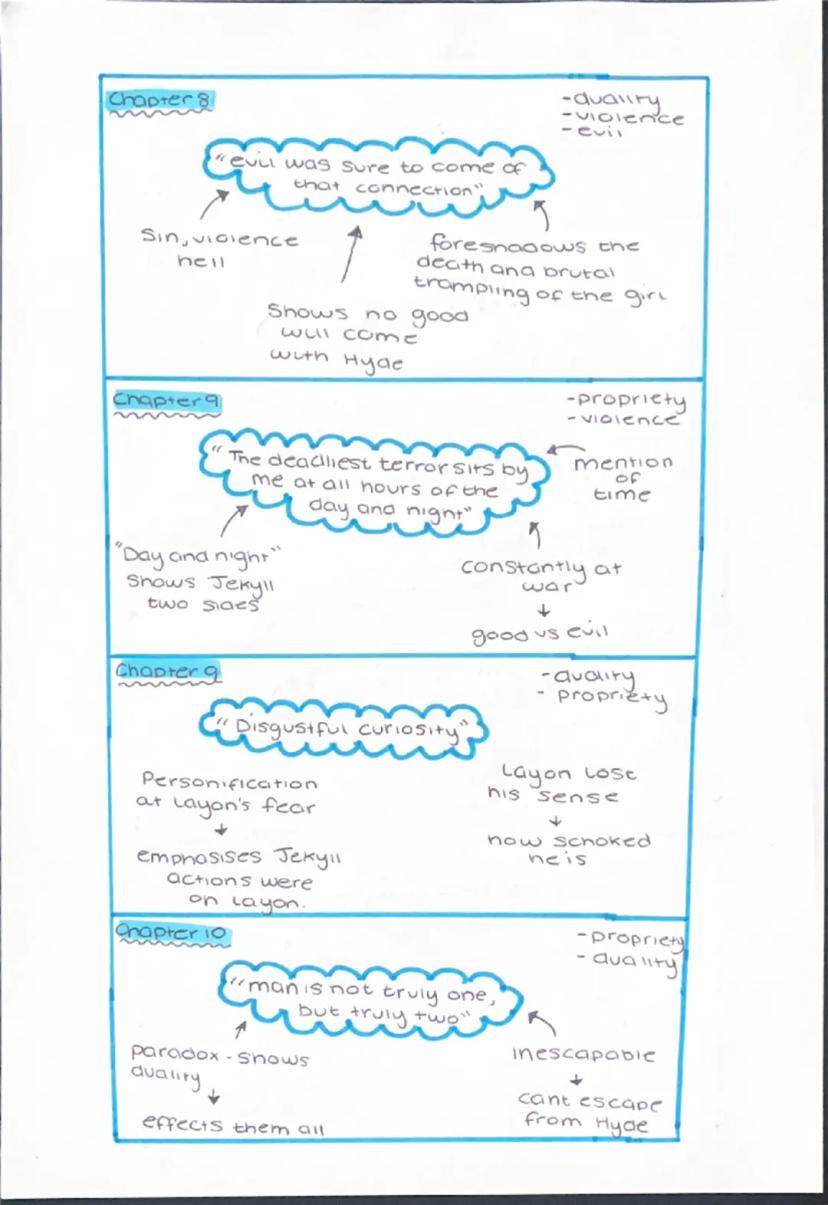 Chapter 8
-duality
-violence
-evil
"evil was sure to come of
that connection"
Sin, violence
hell
foreshadows the
death and brutal
trampling of the girl
Shows no good
will come
with Hyde
Chapter 9
-propriety
-violence
"The deadliest terror sits by
me at all hours of the
day and night"
mention
of
time
"Day and night"
shows Jekyll
two sides
constantly at
war
good vs evil
Chapter 9
-duality
- propriety
"Disgustful curiosity"
Personification
at Layon's fear
emphasises Jekyll
actions were
on Layon.
Layon lose
his sense
how schoked
he is
Chapter 10
-propriety
- duality
"man is not truly one,
but truly two"
paradox - shows
duality
effects them all
inescapable
cant escape
from Hyde